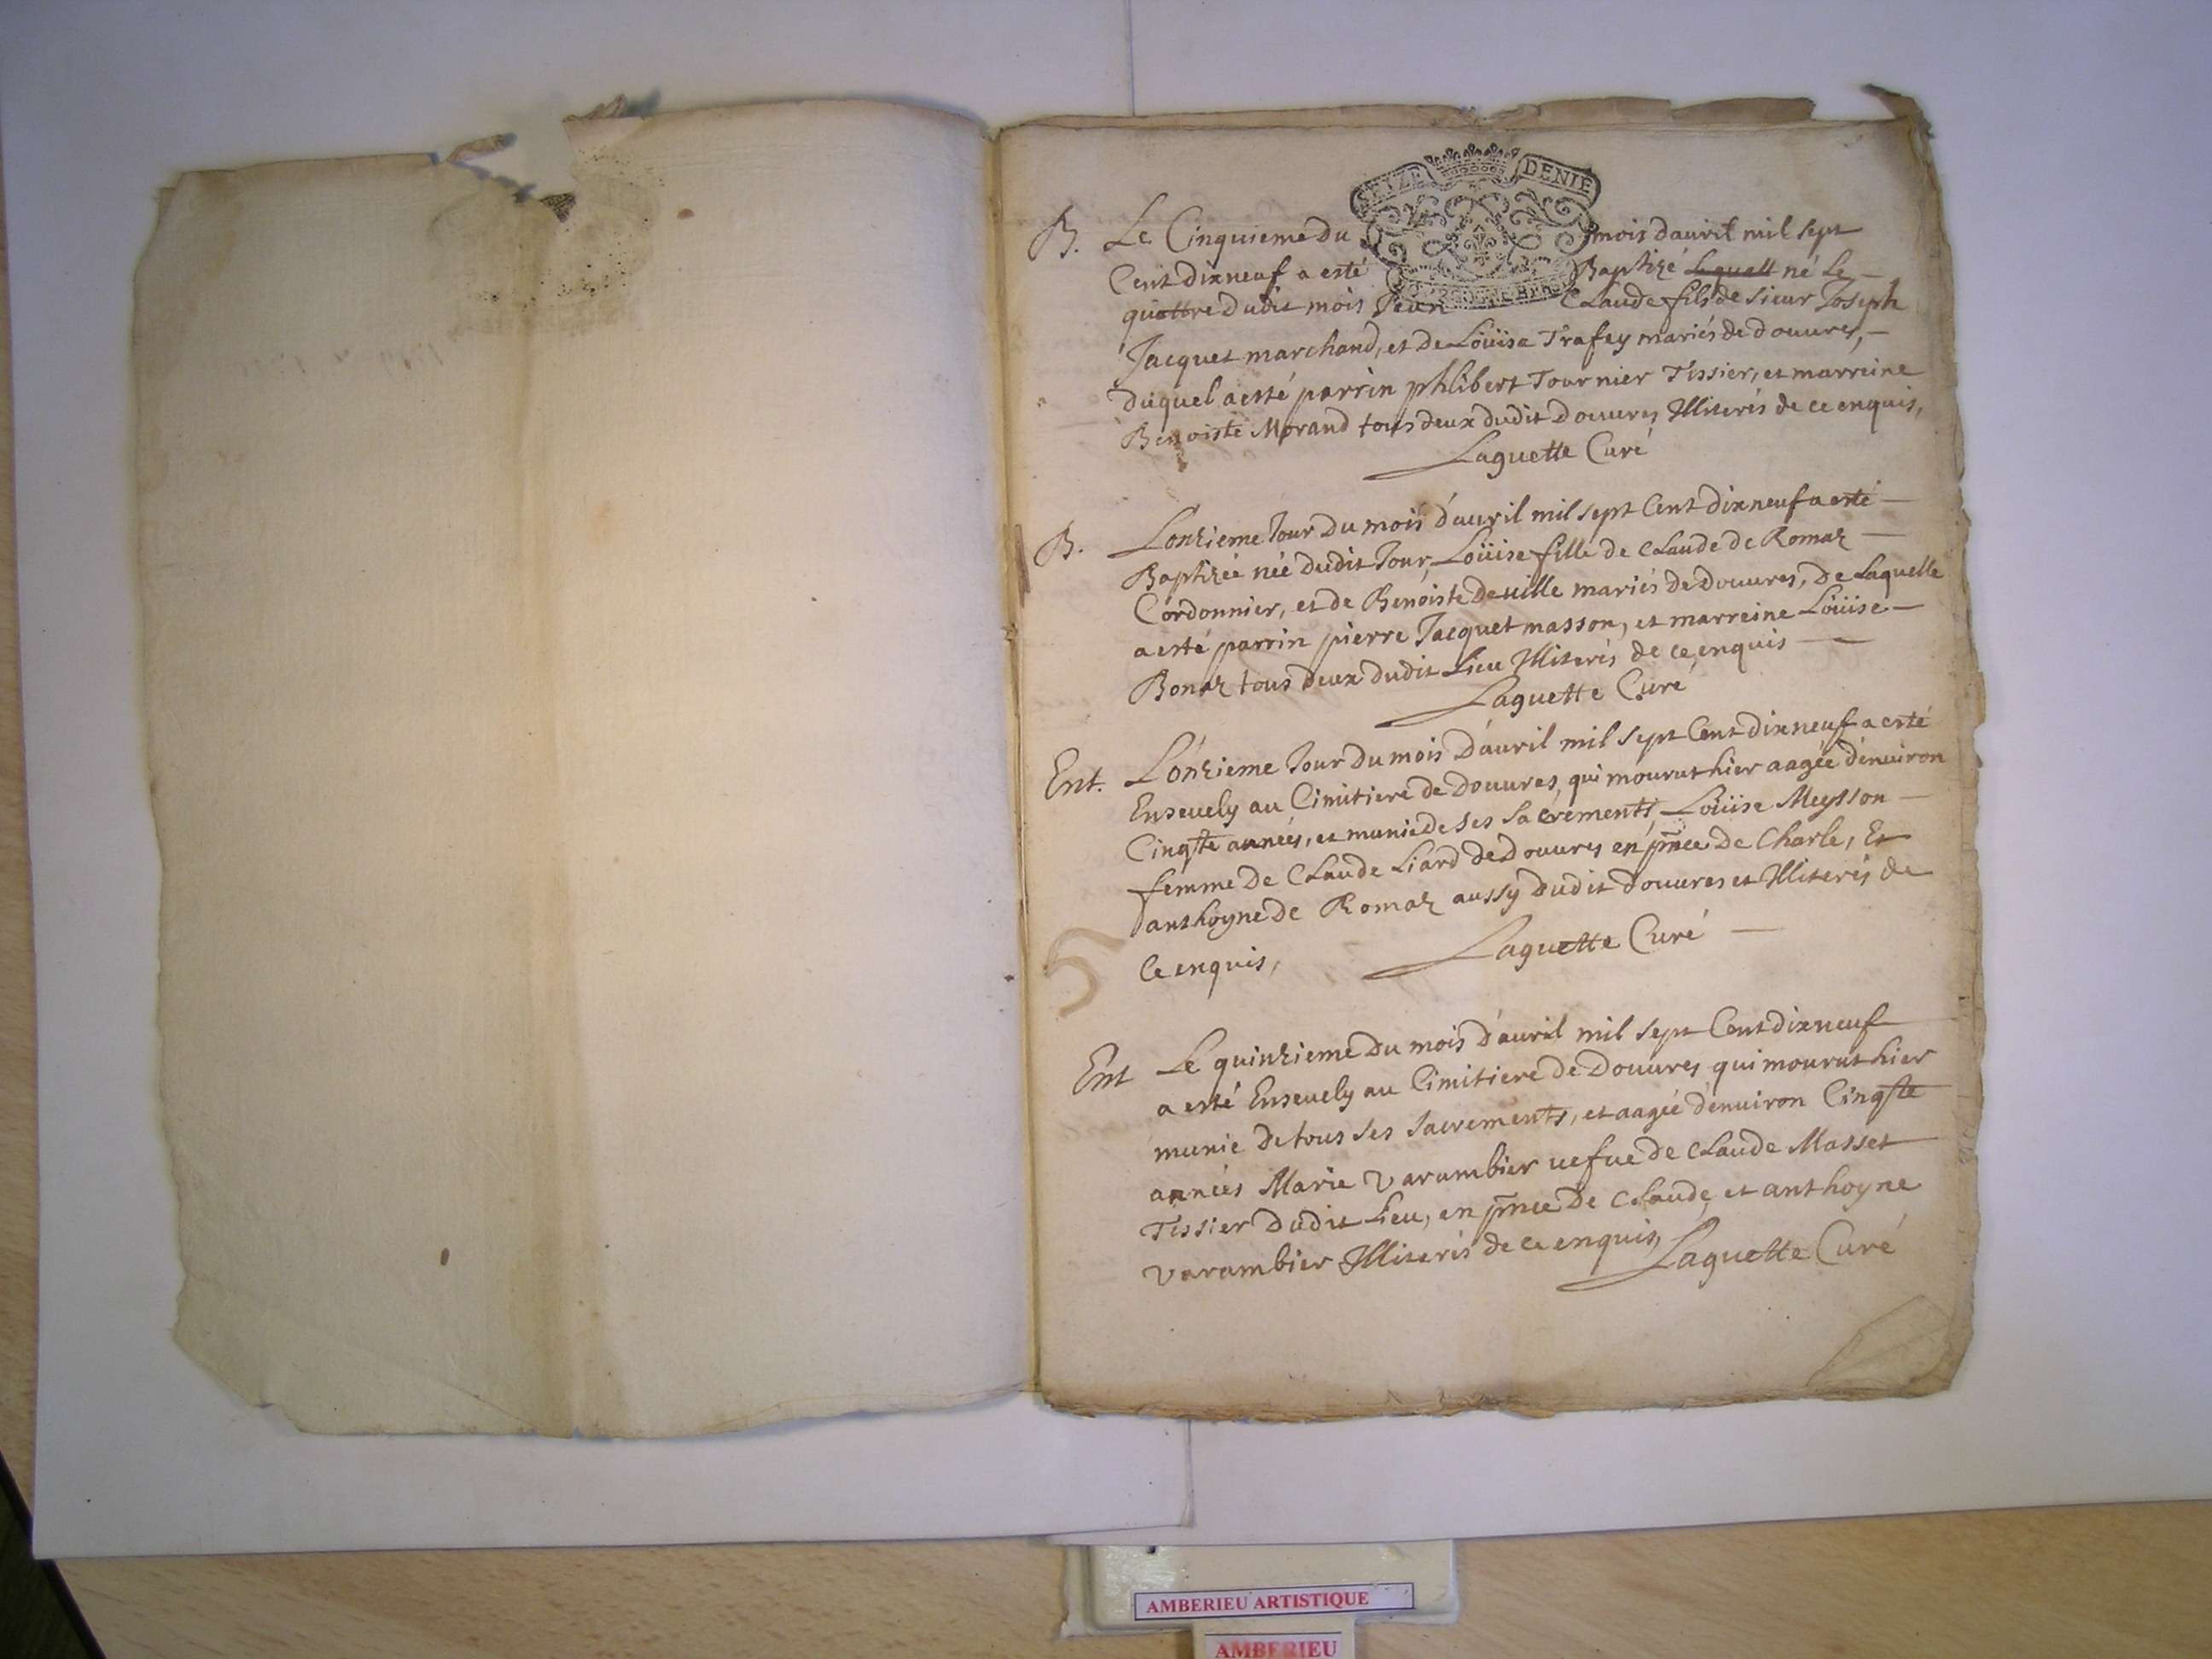 SEIZE DENIE
B. Le Cinquieme du mois dauvril mil sept
Cent dixneuf a esté Baptizé Lequell né Le
quattre dudit mois Jean Claude fils de sieur Joseph
Jacquet marchand, et de Loüise Trafey mariés de douures,
duquel a esté parrin phlibert Tournier Tissier, et marreine
Benoiste Morand tous deux dudit Douures Illiterés de ce enquis,
Laguette Curé
B. Lonzieme Jour du mois d'auvril mil sept Cent dixneuf a esté
Baptizée née dudit Jour, Loüise fille de Claude de Romaz
Cordonnier, et de Benoiste deville mariés de Douures, de Laquelle
a esté parrin pierre Jacquet masson, et marreine Loüise
Bonaz tous deux dudit Lieu Illiterés de ce enquis
Laguette Curé
Ent. L'onzieme Jour du mois D'auvril mil sept Cent dixneuf a esté
Ensevely au Cimitiere de Douures, qui mourut hier aagée d'enuiron
Cinqte années, et munie de ses sacrements, Loüise Meysson
femme de Claude Liard de Douures en pnce de Charle, Et
anthoyne de Romaz aussy dudit Douures et Illiterés de
Ce enquis, Laguette Curé
5
Ent Le quinzieme du mois d'auvril mil sept Cent dixneuf
a esté Ensevely au Cimitiere de Douures qui mourut hier
munie de tous ses sacrements, et aagée d'enuiron Cinqte
années Marie Varambier uefue de Claude Masset
Tissier dudit Lieu, en pnce de Claude, et anthoyne
Varambier Illiterés de ce enquis, Laguette Curé
AMBERIEU ARTISTIQUE
AMBERIEU